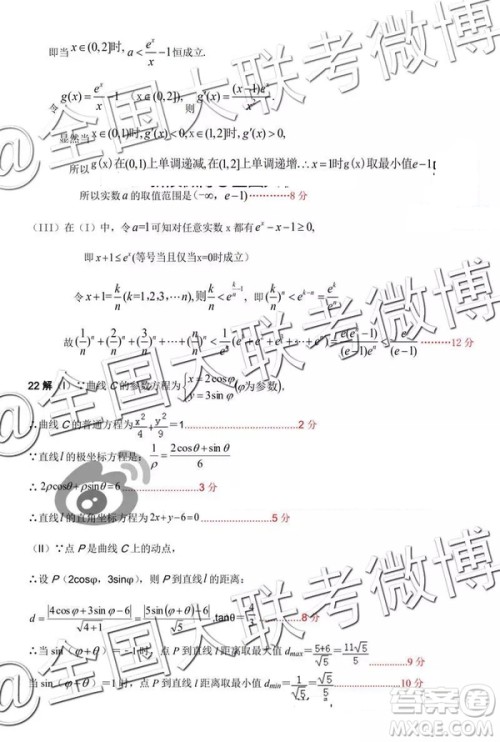 即当x∈(0,2]时, a < e^x/x −1 恒成立.
g(x)= e^x/x −1 (x∈(0,2]), 则 g'(x)= (x−1)e^x/x²
显然当x∈(0,1)时,g'(x)<0;x∈(1,2)时,g'(x)>0,
所以g(x)在(0,1)上单调递减,在(1,2]上单调递增.∴x=1时g(x)取最小值e−1
所以实数a的取值范围是(−∞,(e−1)············8分
(III)在(I)中, 令a=1可知对任意实数 x 都有e^x−x−1≥0,
即x+1≤e^x(等号当且仅当x=0时成立)
令x+1=k/n(k=1,2,3,···,n),则k/n<e^(k/n−1), 即(k/n)^n<e^(k−n)=e^k/e^n
22解
曲线C的参数方程为{x=2cosφ y=3sinφ (φ为参数),
∴曲线C的普通方程为x²/4+y²/9=1············2分
∵直线l的极坐标方程为1/ρ=(2cosθ+sinθ)/6
∴2ρcosθ+ρsinθ=6············3分
∴直线l的直角坐标方程为2x+y−6=0············5分
(II)∵点P是曲线C上的动点,
∴设P(2cosφ, 3sinφ), 则P到直线l的距离:
d=|4cosφ+3sinφ−6|/√(4+1)=|5sin(φ+θ)−6|/√5,tanθ=4/3············8
∴当sin(φ+θ)=−1时,点P到直线l距离取最大值d_max=(5+6)/√5=11√5/5············9分
当sin(φ+θ)=1时, 点P到直线l距离取最小值d_min=1/√5=√5/5.
@全国大联考微博
@全国大联考微博
答案圈
MXQE.COM